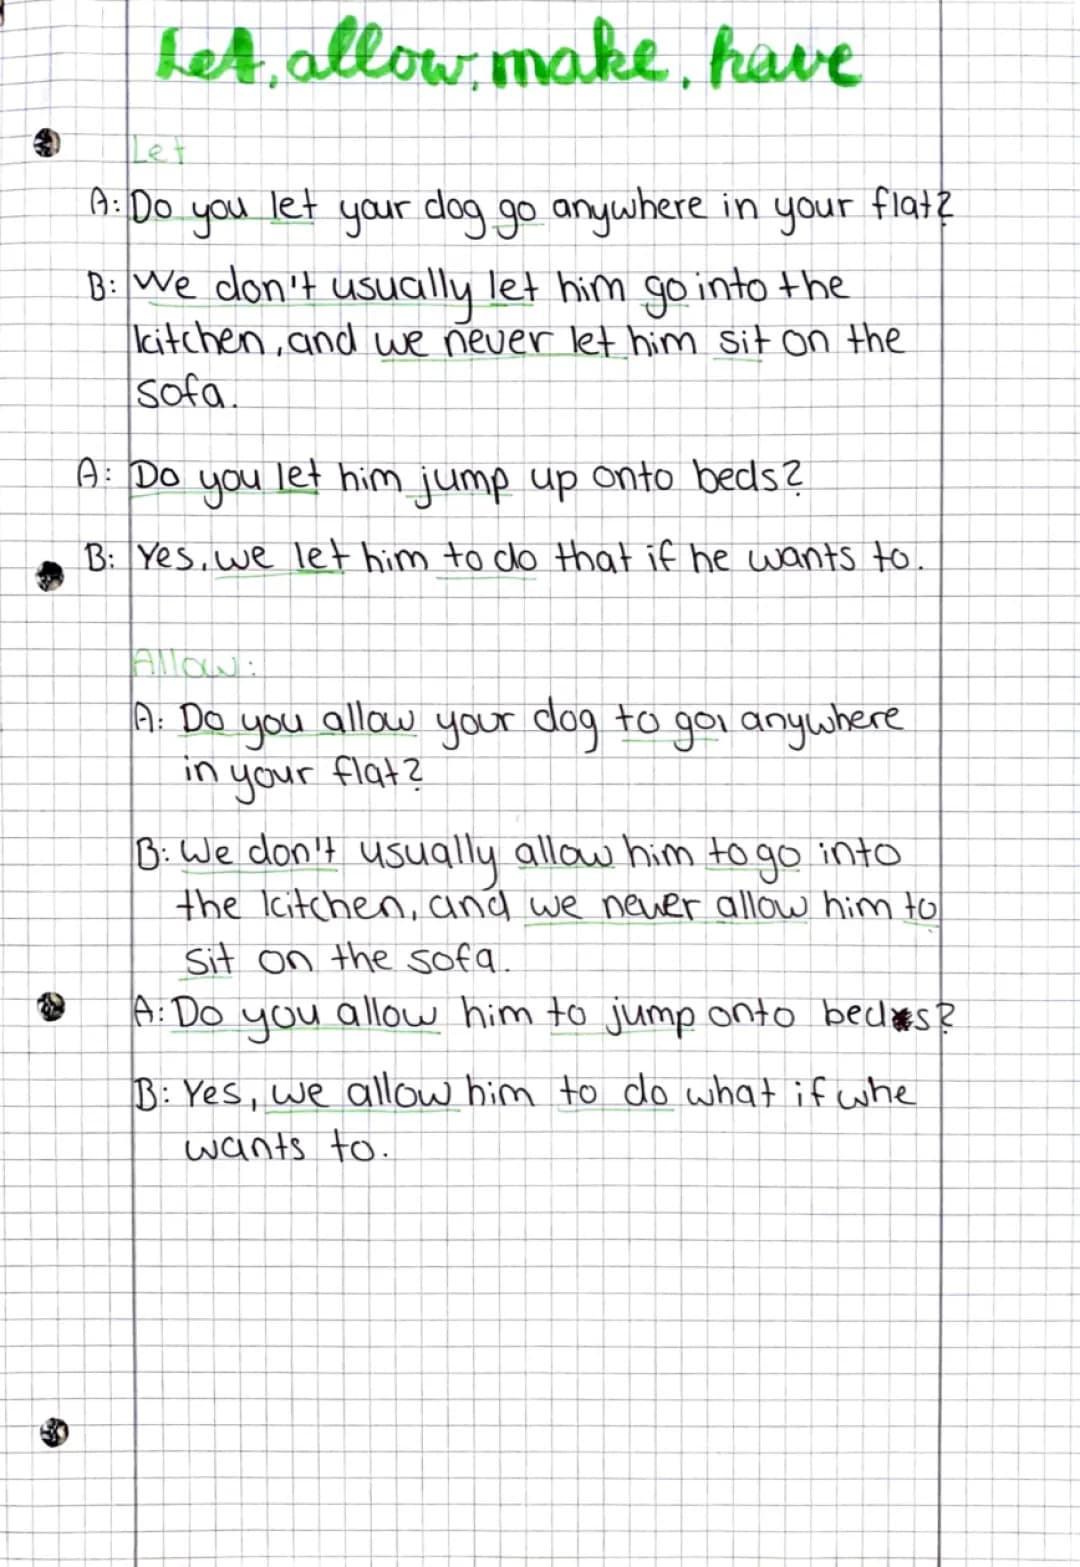 Let, allow, make, have
Let
A: Do you let your dog go anywhere in your flat?
B: We don't usually let him go into the
kitchen, and we never let him sit on the
sofa.
A: Do you let him jump up onto beds?
B: Yes, we let him to do that if he wants to.
Allow:
A: Do you allow your dog to go anywhere
in your flat?
B: We don't usually allow him to go into
the kitchen, and we never allow him to
sit on the sofa.
A: Do you allow him to jump onto beds?
B: Yes, we allow him to do what if whe
wants to.